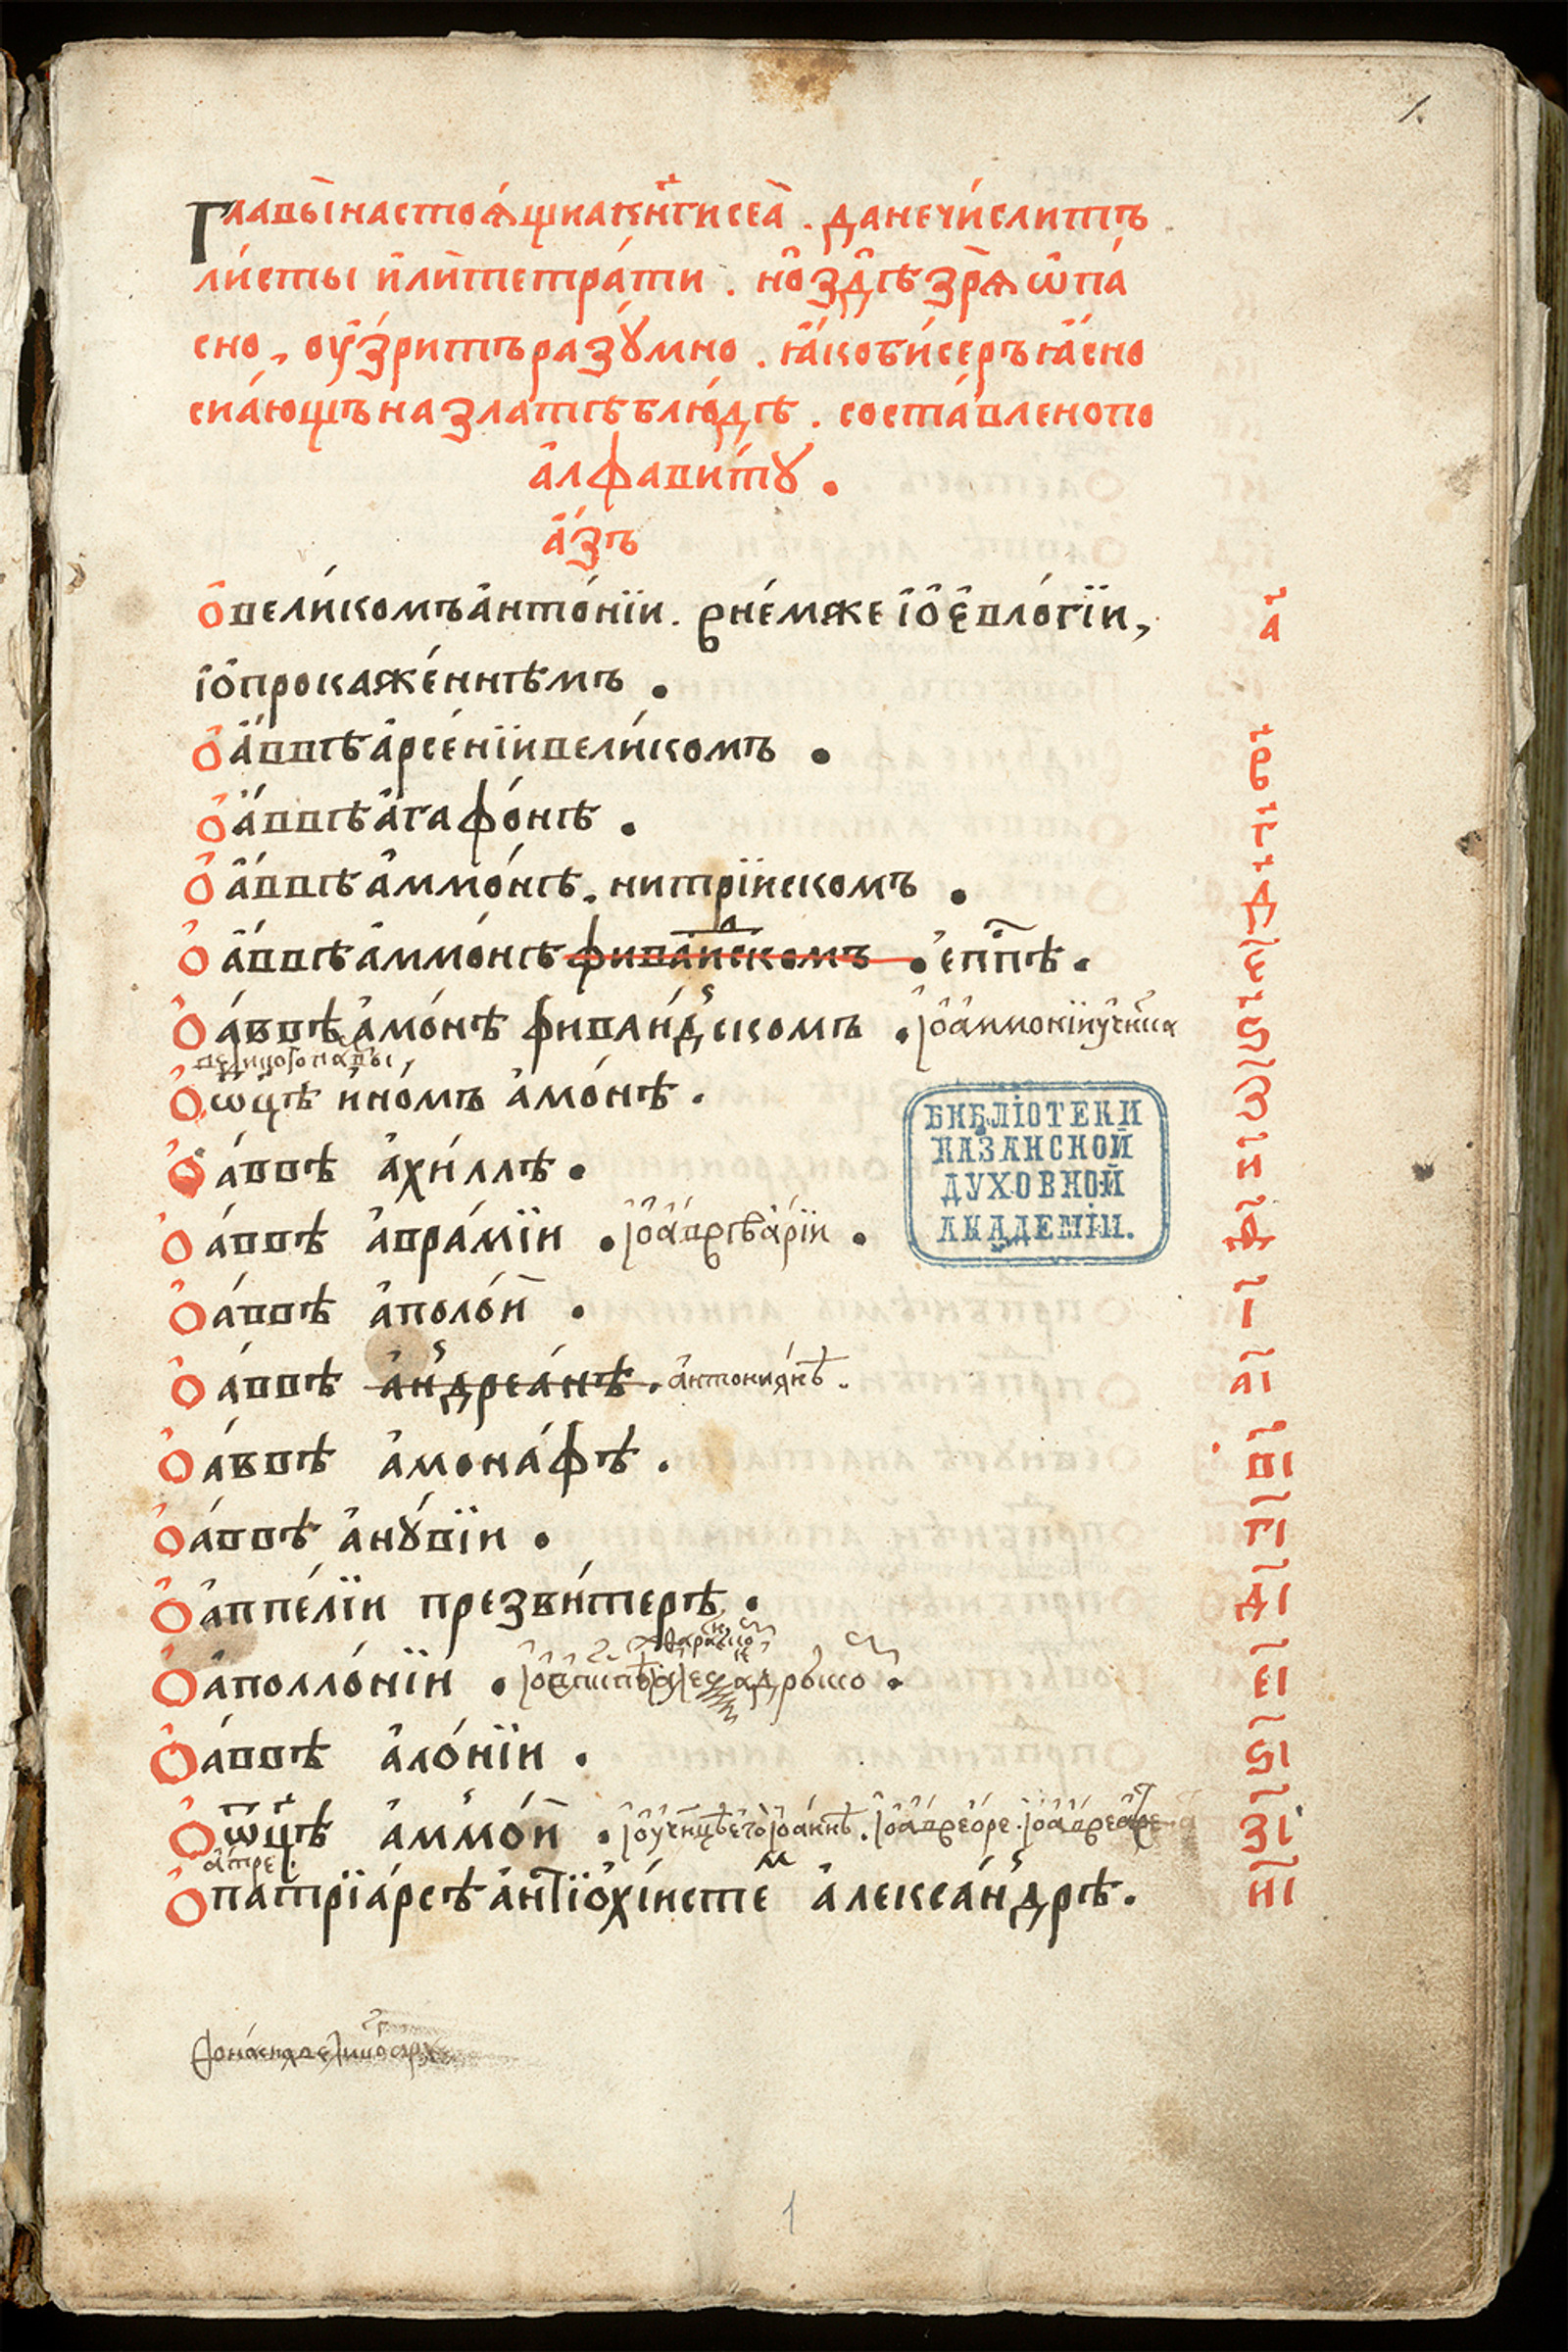 1.
Главы̀ настоѧ́щиа кн҃ги сеа̀. да не чи́слитъ
ли́сты и҆лѝ тетра́ти. но҆ здѣ̀ зрѧ̀ ѡ҆па́
сно, оу҆́зритъ разꙋ́мно. ꙗ҆́ко би́серъ ꙗ҆́сно
сиа́ющъ на златѣ блю́дѣ. соста́влено по
а҆лфави́тꙋ.
а҆́зъ
Ѻ вели́комъ а҆нто́нїи. в не́мже і҆ о҆ є҆вло́гїи, а҃
і҆ о҆ прокаже́ннѣмъ.
О҆ а҆́ввѣ а҆рсе́нїи вели́комъ. в҃
О҆ а҆́ввѣ а҆гафо́нѣ. г҃
О҆ а҆́ввѣ а҆ммо́нѣ. нитрїискомъ. д҃
О҆ а҆́ввѣ а҆ммо́нѣ фиваи́скомъ. е҆пⷭ҇пѣ. е҃
О҆ а́ввѣ а҆мо́нѣ фиваи́дскомъ. і҆ о҆ а҆ммонїи ѕ҃
О҆ ѡц҃ѣ и҆но́мъ а҆мо́нѣ. з҃
О҆ а́ввѣ а҆хи́ллѣ. и҃
О҆ а́ввѣ а҆вра́мїи. і҆ о҆ а҆́врѣ а҆рі́и. ѳ҃
О҆ а́ввѣ а҆поло́н. і҃
О҆ а́ввѣ а҆ндреа́нѣ. а҆нтонија́нѣ. а҃і
О҆ а́ввѣ а҆мона́фѣ. в҃і
О҆ а́ввѣ а҆нꙋ́вїи. г҃і
О҆ а҆ппе́лїи презви́терѣ. д҃і
О҆ а҆полло́нїи. е҃і
О҆ а́ввѣ а҆ло́нїи. ѕ҃і
О҆ ѡ҆тц҃ѣ а҆ммо́н. з҃і
О҆ патрїа́рсѣ а҆нтїо҆хі́исте́м а҆лекса́ндрѣ. и҃і
БИБЛІОТЕКИ
КАЗАНСКОЙ
ДУХОВНОЙ
АКАДЕМІИ.
1